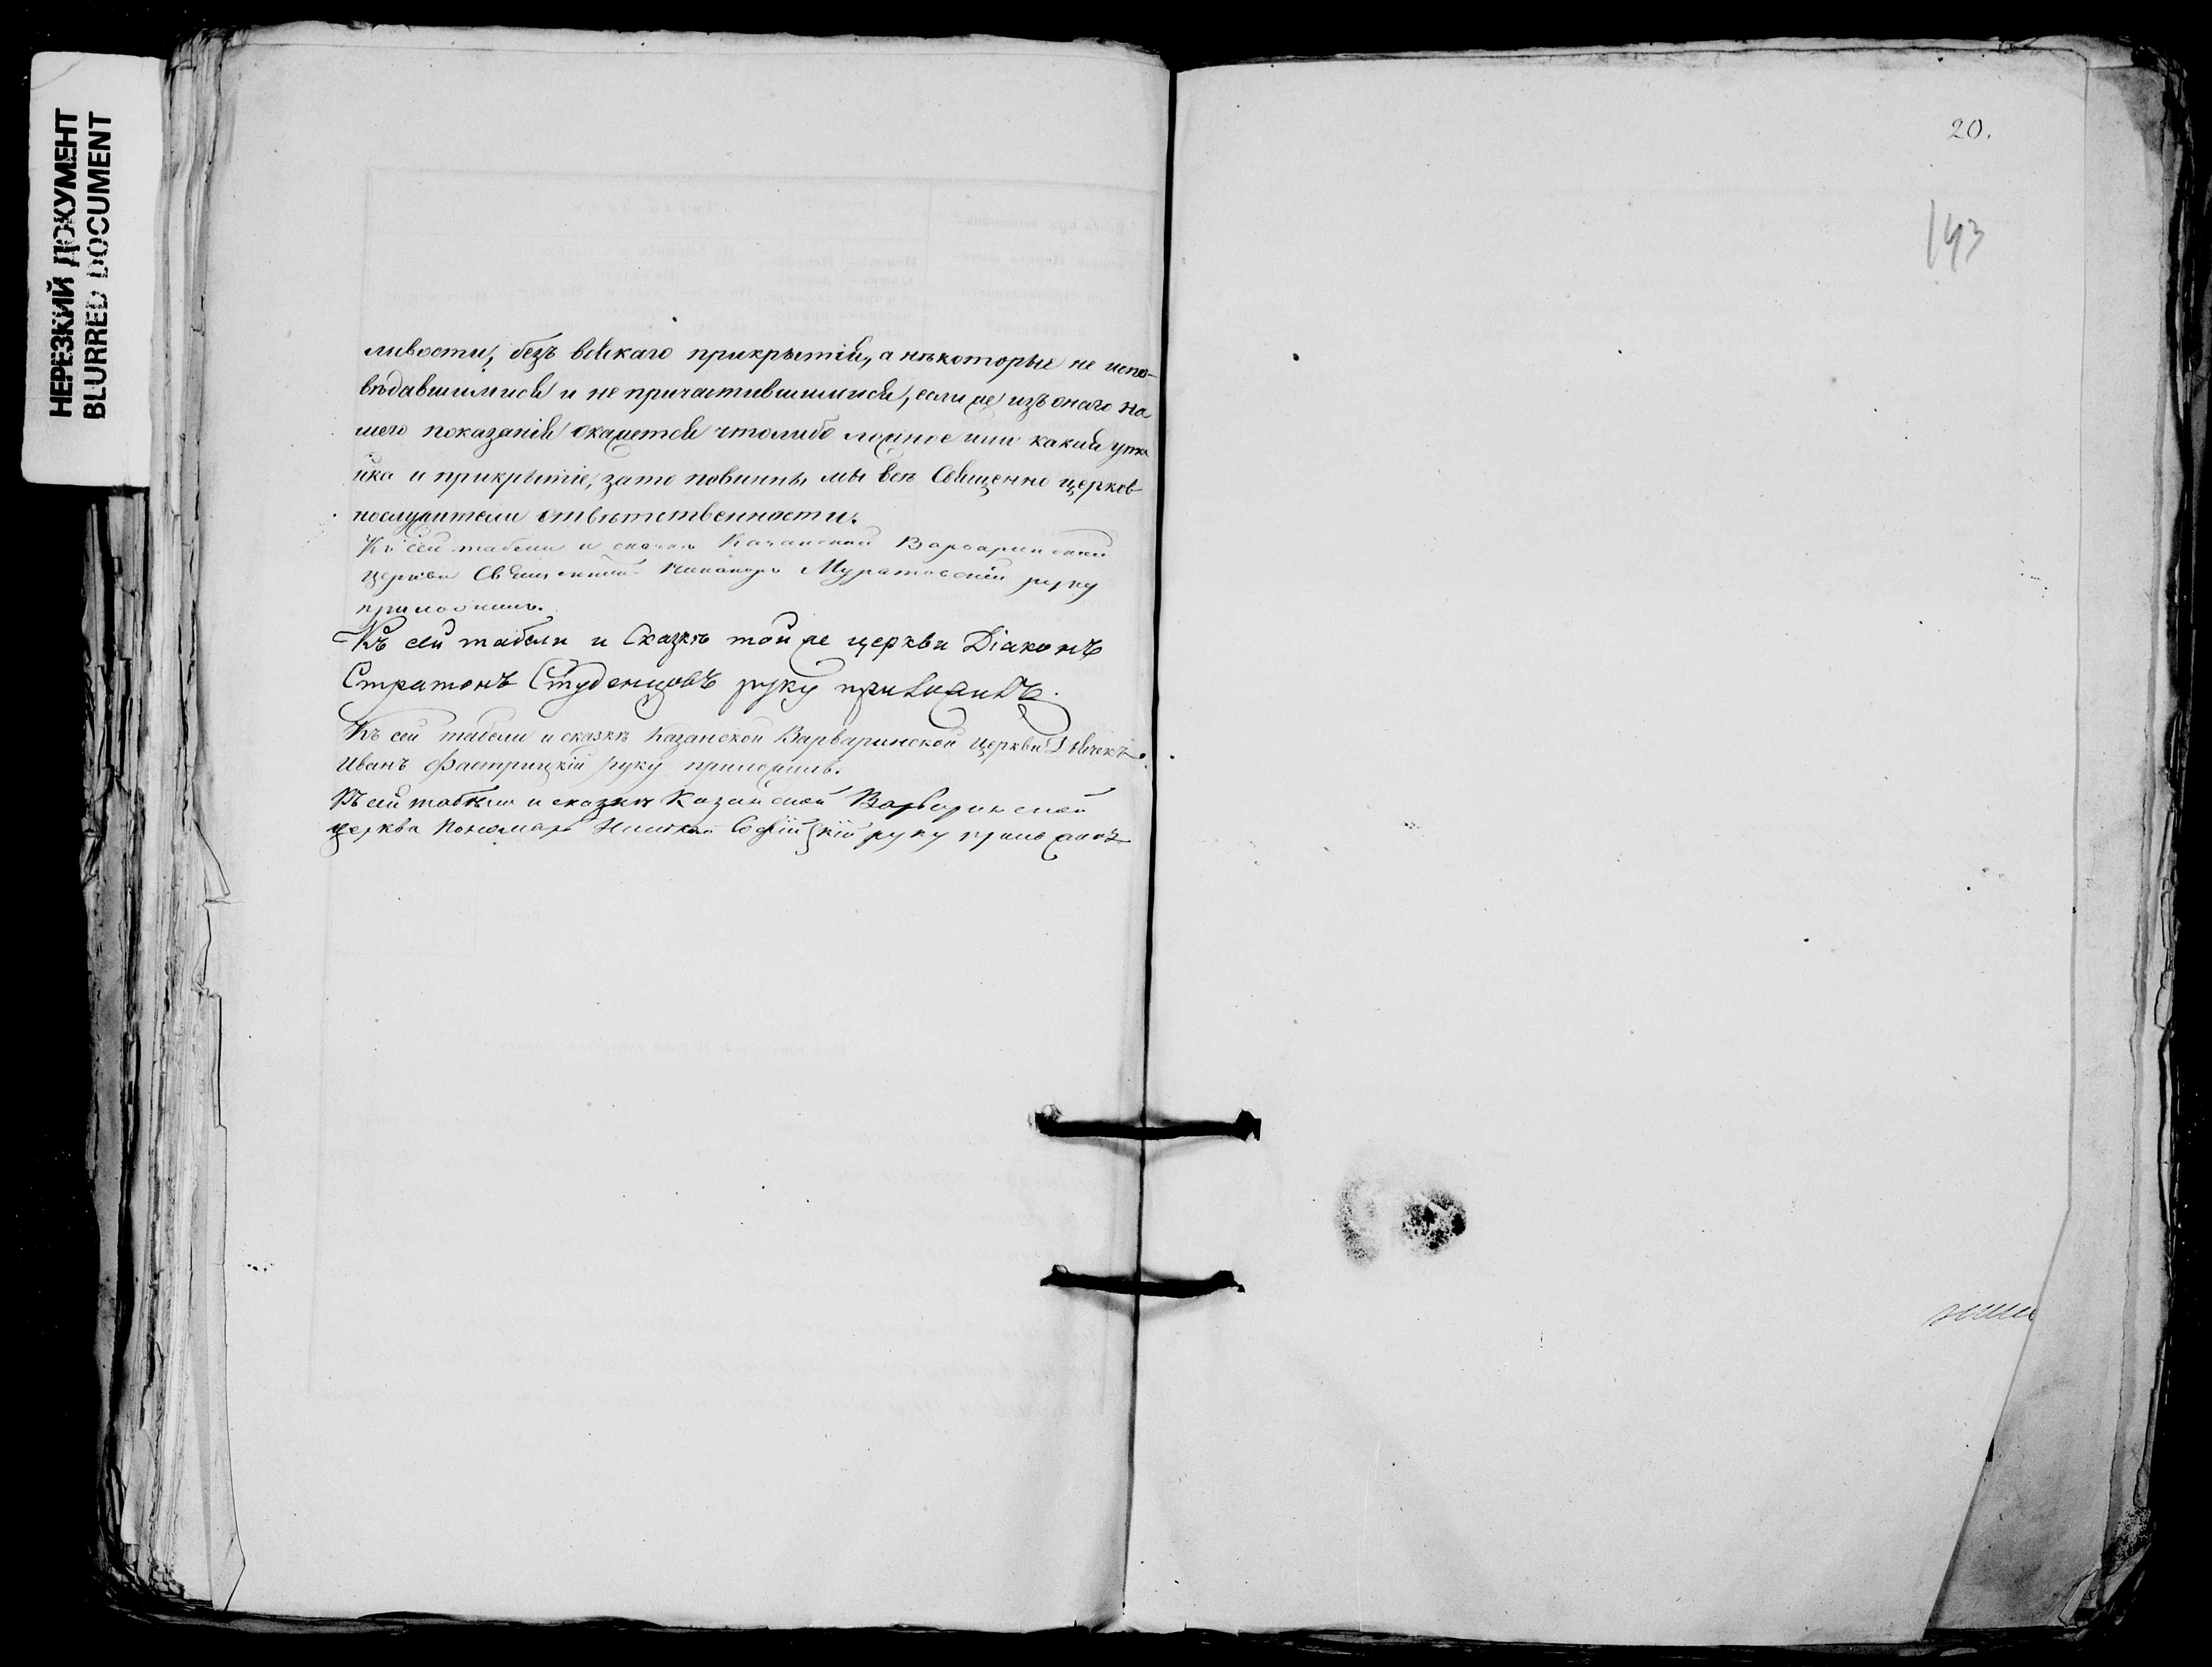 НЕРЕЗКИЙ ДОКУМЕНТ
BLURRED DOCUMENT
ливости, безъ всякаго прикрытія, а нѣкоторые не испо-
вѣдавшимися и не причастившимися, если же изъ онаго на
шего показанія окажется чтолибо ложное или какая ута
йка и прикрытіе, зато повинны мы всѣ Священно церков
нослужители отвѣтственности.
Къ сей табели и сказкѣ Казанской Варваринской
церкви Священникъ Никаноръ Муратовскій руку
приложилъ.
Къ сей табели и Сказкѣ той же церкви Діаконъ
Стратонъ Студенцовъ руку приложилъ.
Къ сей табели и сказкѣ Казанской Варваринской церкви Дьячекъ
Иванъ руку приложилъ.
Къ сей табели и сказкѣ Казанской Варваринской
церкви Пономарь Николай Софійскій руку приложилъ
20.
143